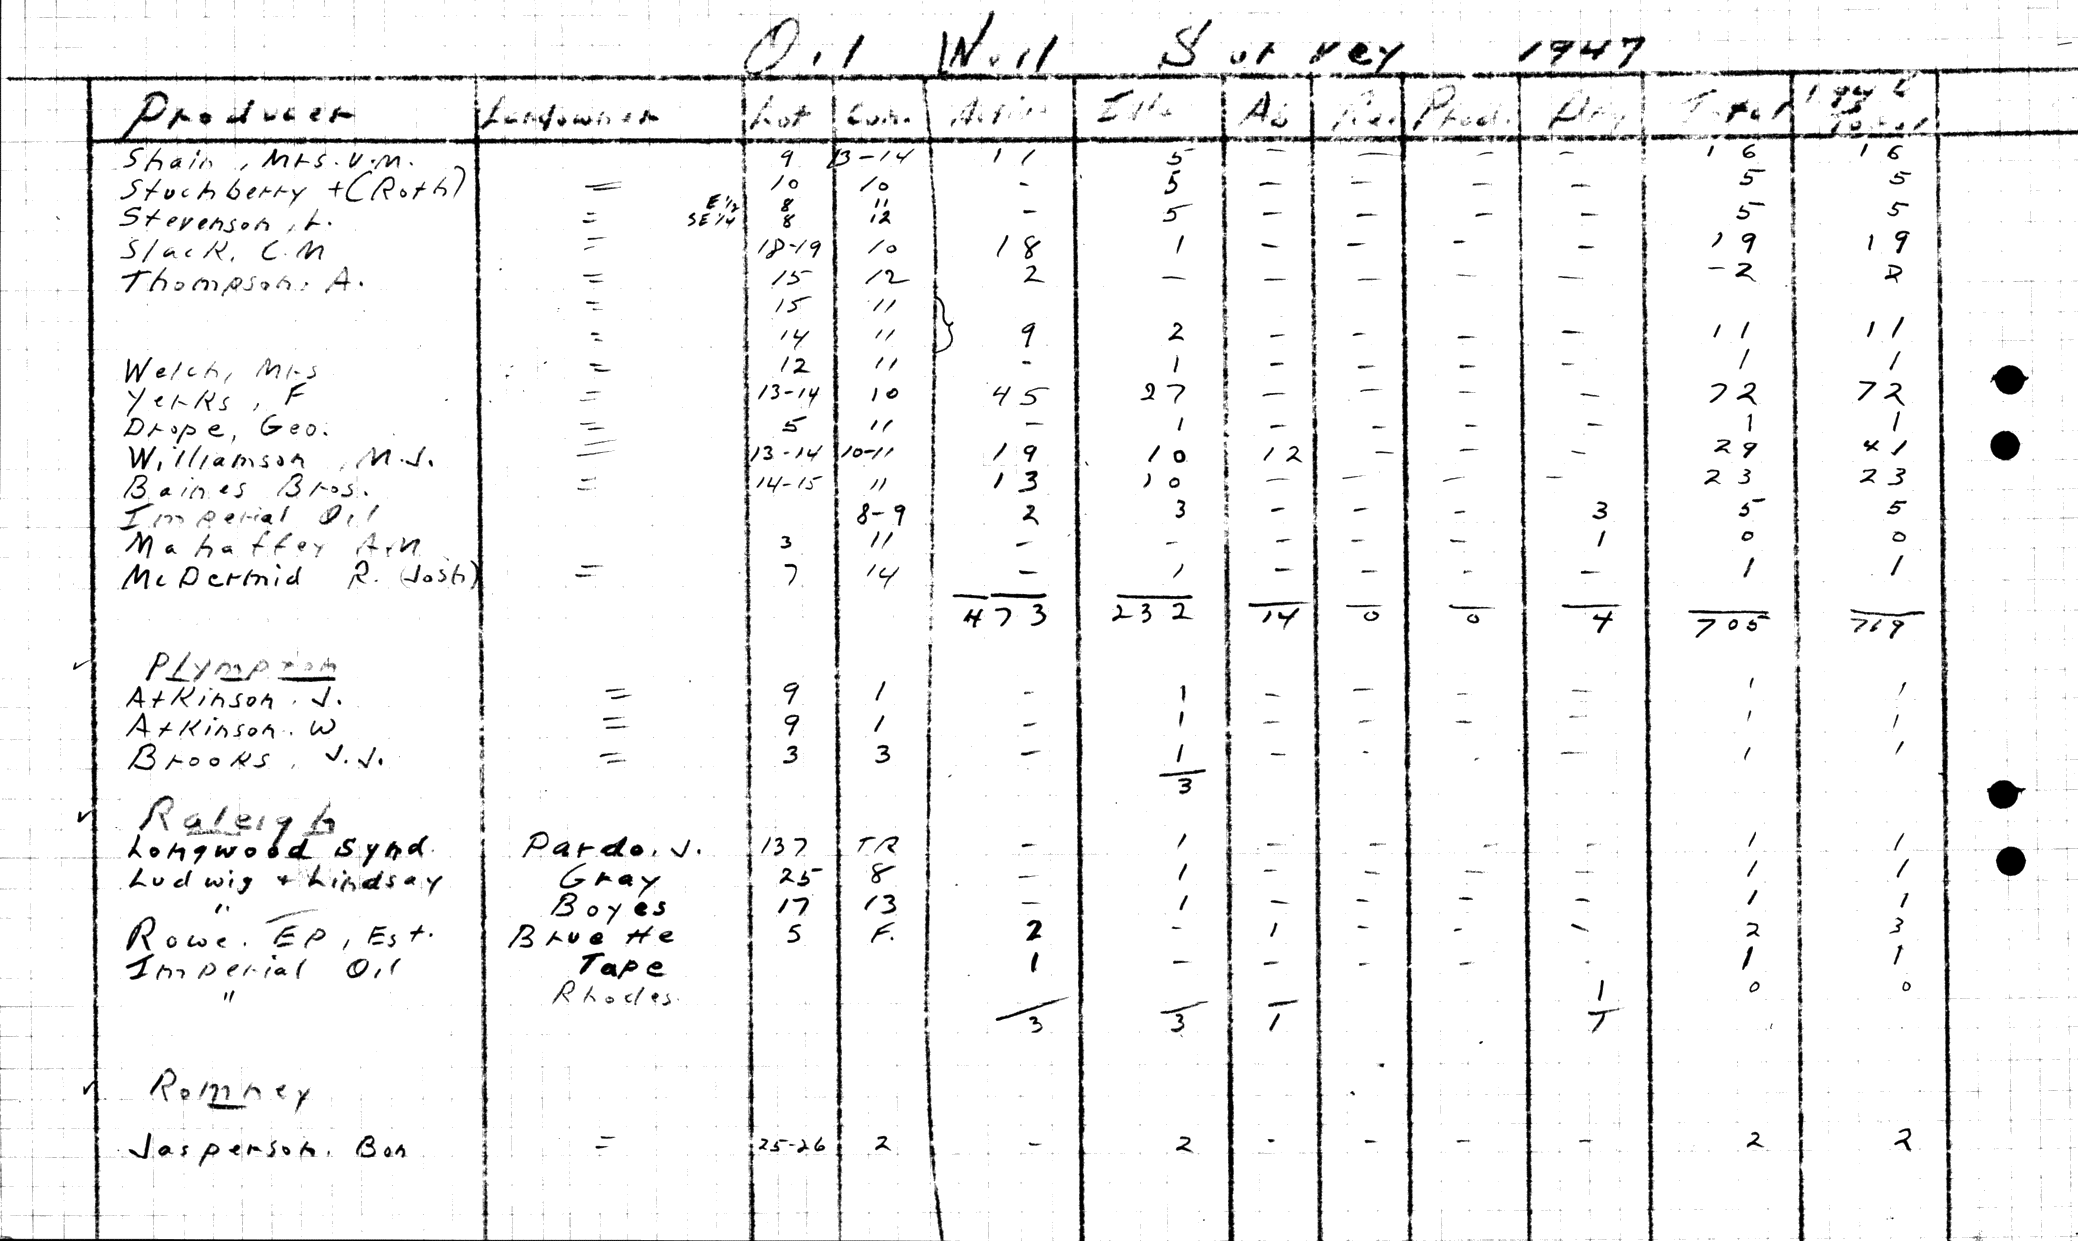 Oil Well Survey 1947
Producer Landowner Lot Con. Active Idle Ab Re. Prod. Dry Total 1946 Total
Shain, Mrs. V.M. 9 13-14 11 5 - - - - 16 16
Stuchberry + (Roth) = 10 10 - 5 - - - - 5 5
Stevenson, L. = E 1/2 8 11
SE 1/4 8 12 - 5 - - - - 5 5
Slack, C.M = 18-19 10 18 1 - - - - 19 19
Thompson, A. = 15 12 2 - - - - - -2 2
= 15 11
= 14 11 } 9 2 - - - - 11 11
Welch, Mrs = 12 11 - 1 - - - - 1 1
Yerks, F = 13-14 10 45 27 - - - - 72 72
Drope, Geo. = 5 11 - 1 - - - - 1 1
Williamson, M.J. = 13-14 10-11 19 10 12 - - - 29 41
Baines Bros. = 14-15 11 13 10 - - - - 23 23
Imperial Oil 8-9 2 3 - - - 3 5 5
Mahaffey A.M 3 11 - - - - - 1 0 0
McDermid R. (Josh) = 7 14 - 1 - - - - 1 1
473 232 14 0 0 4 705 719
✓ Plympton
Atkinson. J. = 9 1 - 1 - - - - 1 1
Atkinson. W = 9 1 - 1 - - - - 1 1
Brooks, J.J. = 3 3 - 1 - - - - 1 1
3
✓ Raleigh
Longwood Synd. Pardo. J. 137 TR - 1 - - - - 1 1
Ludwig + Lindsay Gray 25 8 - 1 - - - - 1 1
" Boyes 17 13 - 1 - - - - 1 1
Rowe. EP, Est. Bruette 5 F. 2 - 1 - - - 2 3
Imperial Oil Tape 1 - - - - - 1 1
" Rhodes 1 0 0
3 3 1 1
✓ Romney
Jasperson. Bon = 25-26 2 - 2 - - - - 2 2